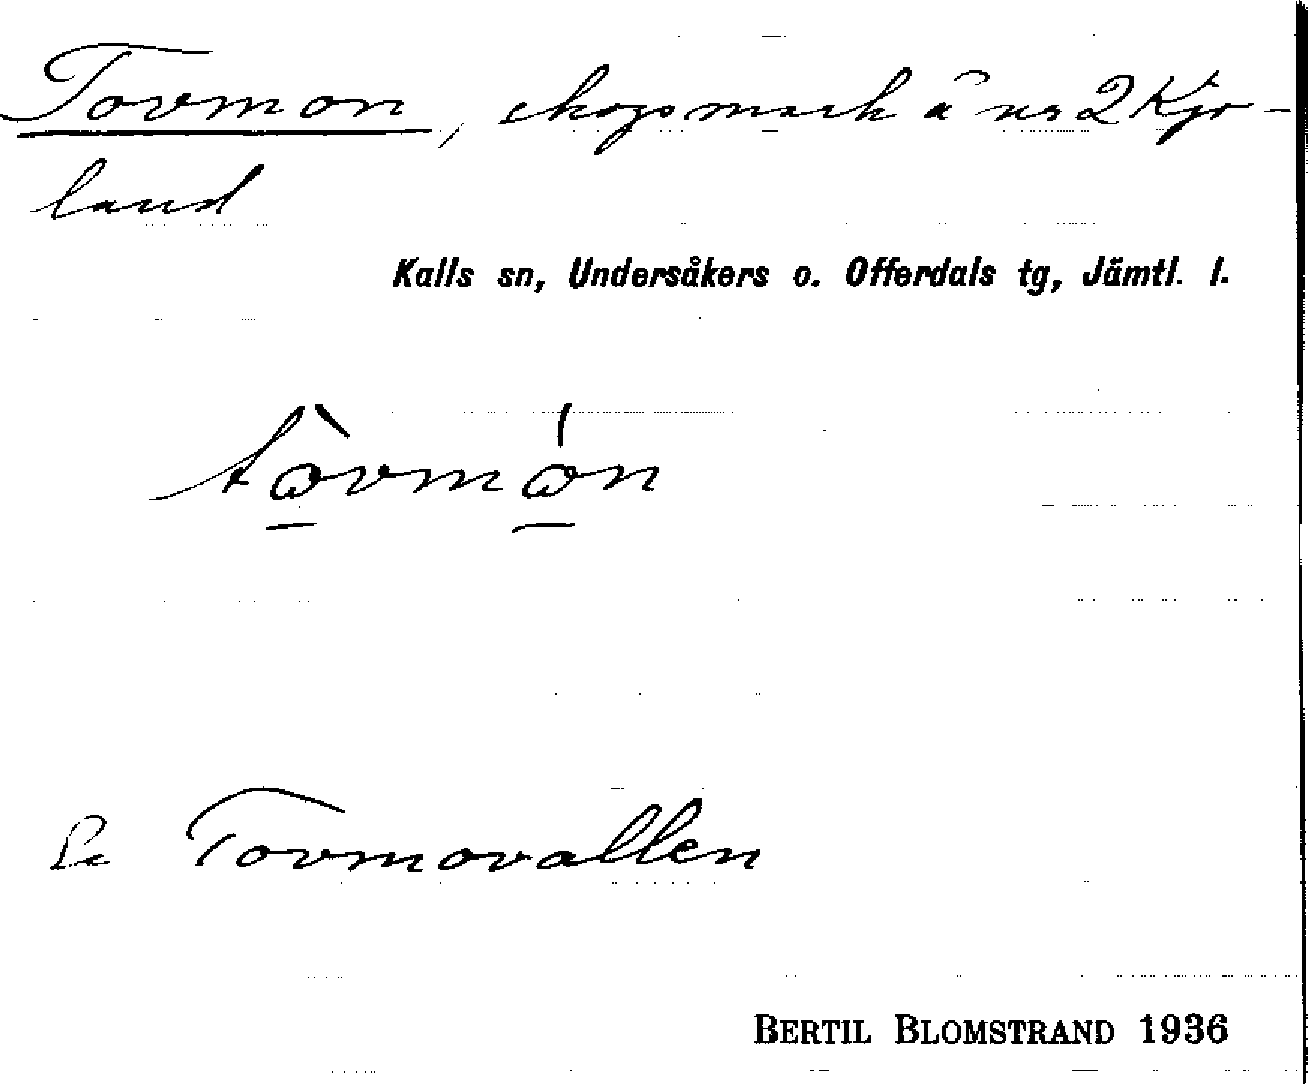 Tovmon, skogsmark å nr 2 Kjo-
land
Kalls sn, Undersåkers o. Offerdals tg, Jämtl. l.
tòvmón
Se Tovmovallen
BERTIL BLOMSTRAND 1936